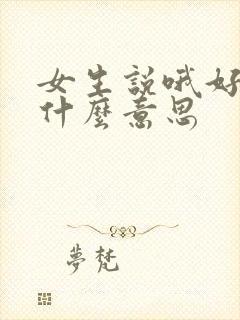 女生說哦好
什麼意思
夢梵